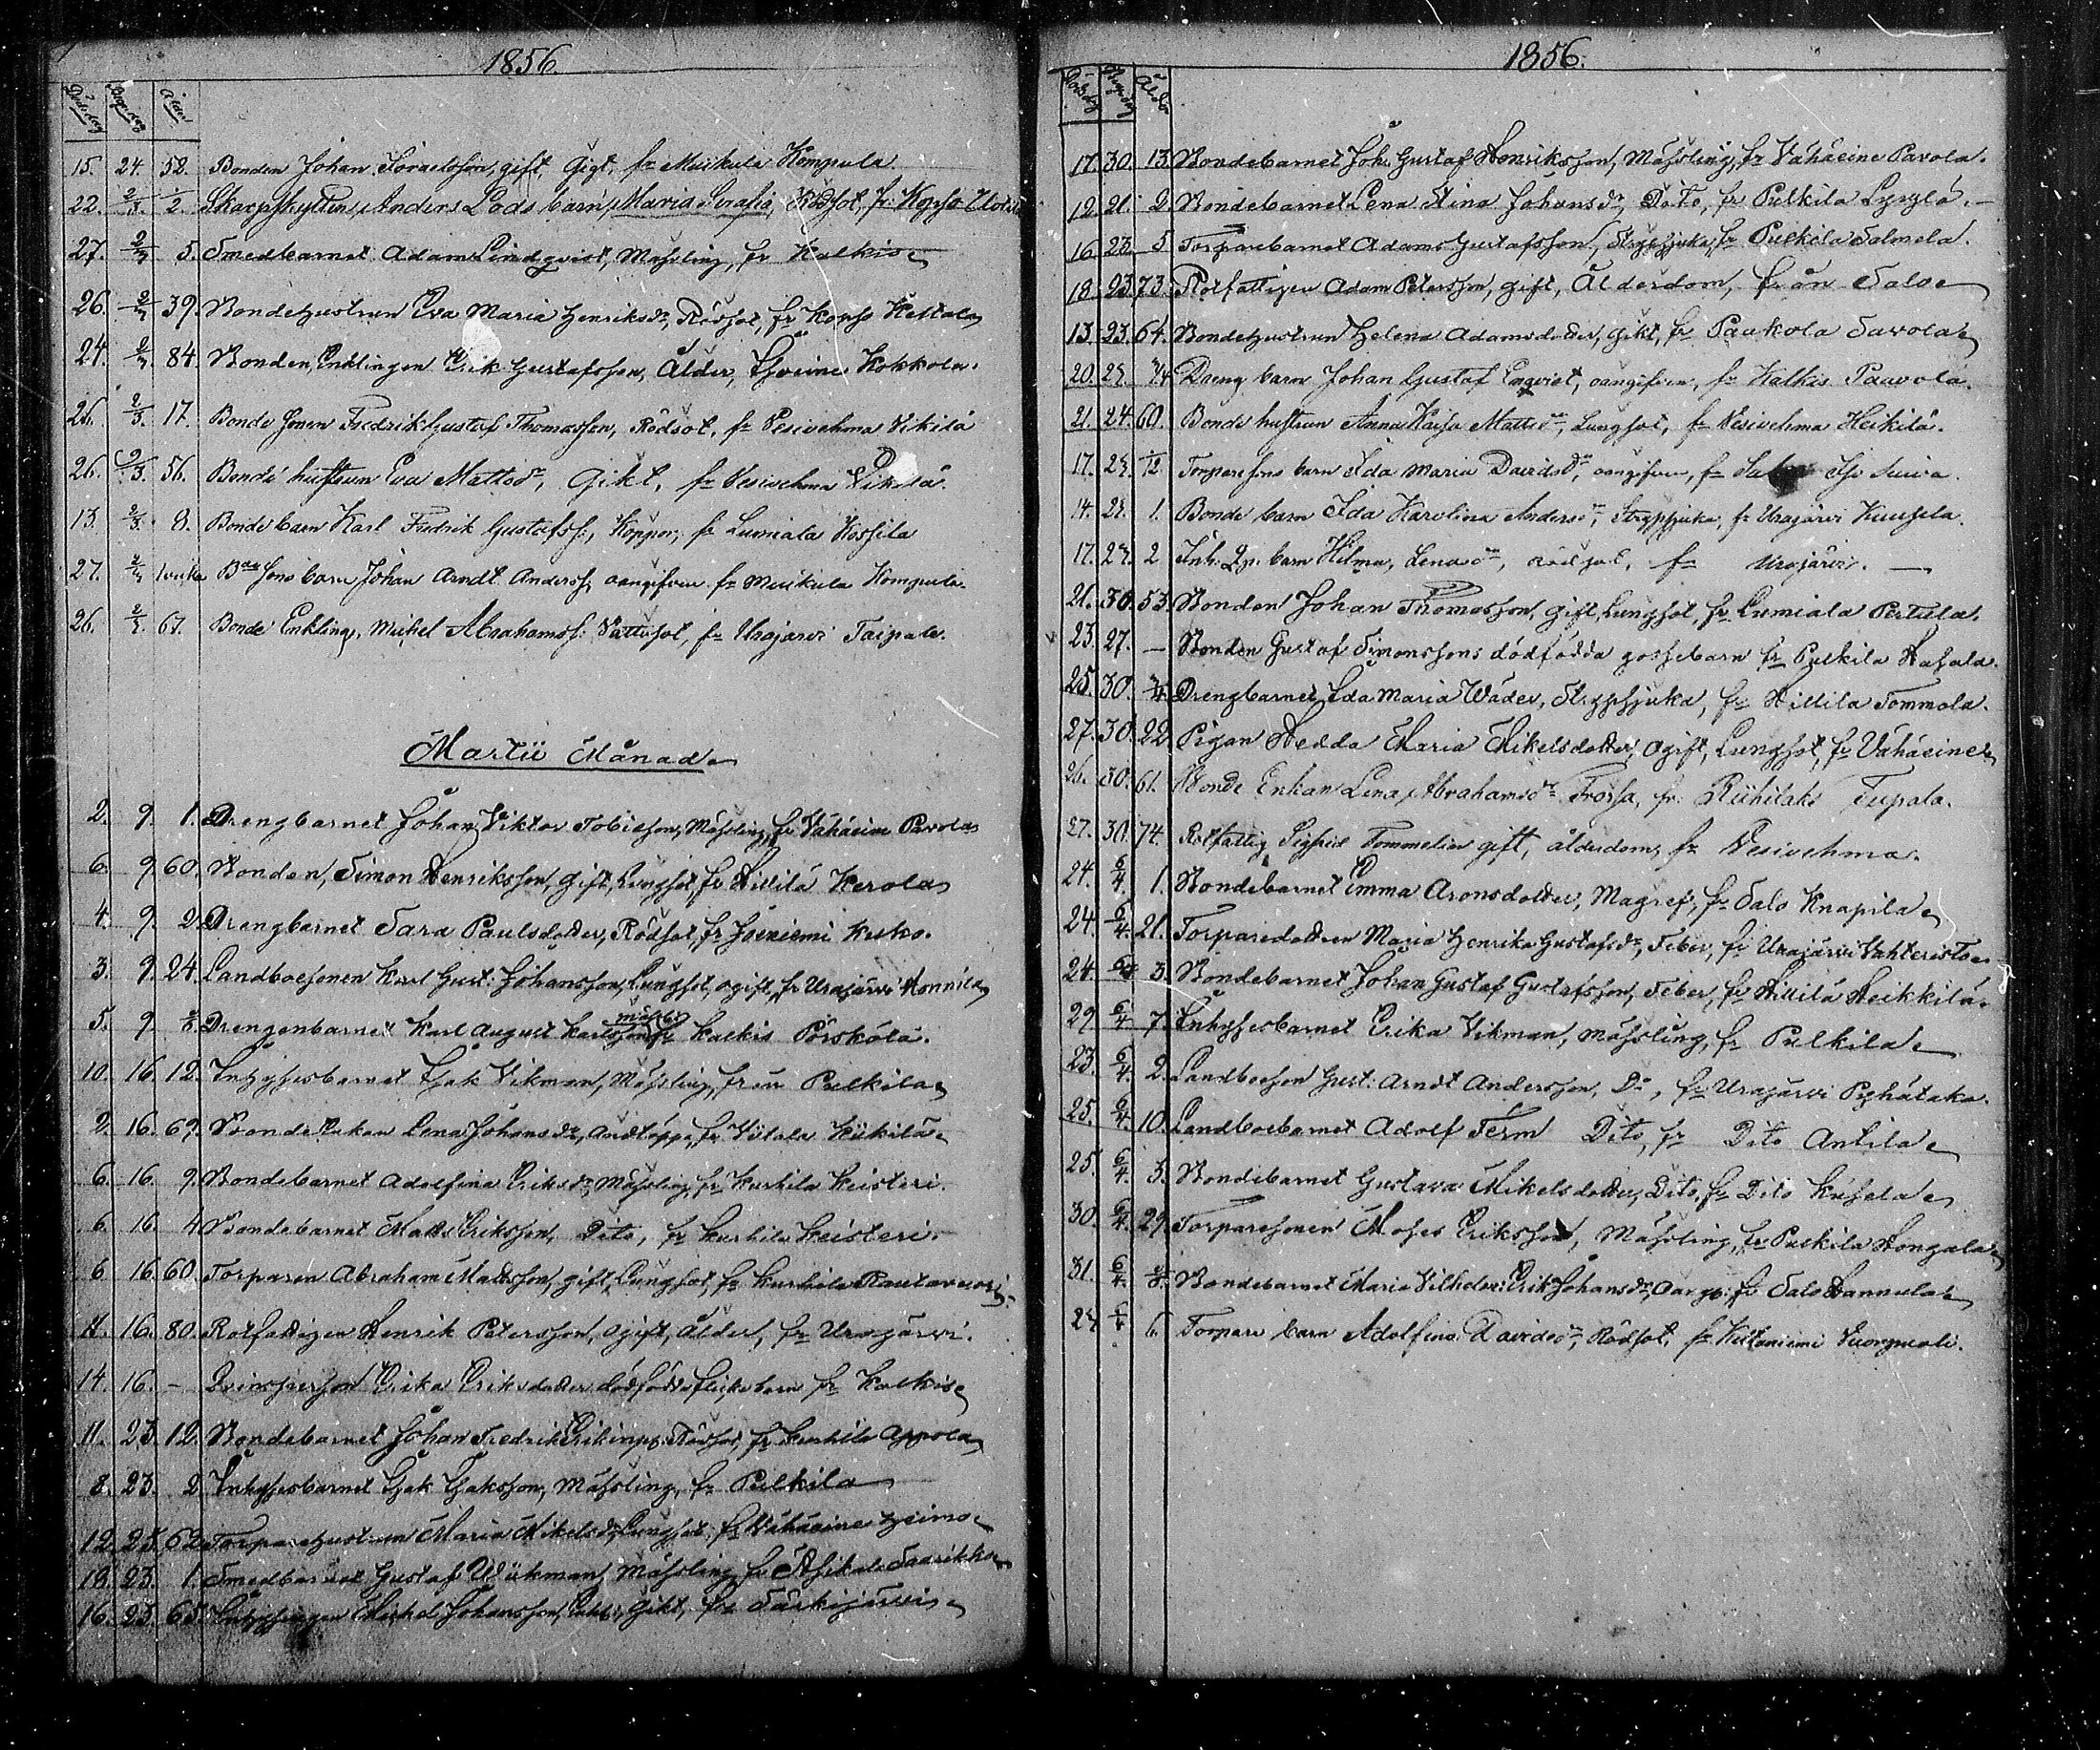 1856.
Dödsdag Begr. dag Ålder
15. 24. 52. Bonden Johan Israelsson, gift, Gigt, fr Muikula Hempula.
22. 2/3. 1/2. Skarpskytten Anders Lods barn, Maria Serafia, Rödsot, fr Kopso
27. 2/3 5. Smedbarnet Adam Lindqvist, Mässling, fr Kalkis
26. 2/3 39. Bondehustrun Eva Maria Henriksdr, Rödsot, fr Kopso Kettala
24. 2/3 84. Bonden, Enklingen Erik Gustafsson, Ålder, Kokkola.
26. 2/3. 17. Bonde sonen Fredrik Gustaf Thomasson, Rödsot, fr Vesivehma Vikilä
26. 2/3. 56. Bonde hustrun Eva Mattsdr, Gikt, fr Vesivehma
13. 2/3. 8. Bonde barn Karl Fredrik Gustafss., Koppor, fr Lumiala Kossila
27. 2/3 1 vecka Bde sons barn Johan Arndt Anderss, oangifven fr Muikula Hempula.
26. 2/3. 67. Bonde Enkling, Mickel Abrahamss. Vattusot, fr Urajärvi Taipale.
Martii Månad
2. 9. 1. Drengbarnet Johan Viktor Tobiesson, Mässling, fr Vähäeine Pavola
6. 9. 60. Bonden, Simon Henriksson, gift, Lungsot, fr Hillilä Kerola
4. 9. 2. Drengbarnet Sara Paulsdotter, Rödsot, fr Joeniemi Kuko.
3. 9. 24. Landboesonen Karl Gust. Johansson, Lungsot, ogift, fr Urajärvi Honnila
mässl.
5. 9 Drengenbarnet Karl August Karlsson fr Kalkis Pörsköla.
10. 16. 12. Inhysesbarnet Isak Vikman, Mässling, från Pulkila
2. 16. 69. Bonde Enkan Lena Johansdr, Andtäppa, fr Viitala Kiikilä
6. 16. 9. Bondebarnet Adolfina Eriksdr, Mässling, fr Kurhila Keisteri.
6. 16. 4 Bondebarnet Matts Eriksson, Dito, fr Kurhila Keisteri.
6 16. 60. Torparen Abraham Mattsson, gift, Lungsot, fr Kurhila Rautavuori.
11. 16. 80. Rotfattigen Henrik Petersson, ogift, ålder, fr Urajärvi.
14. 16. - Qvinsperson Erika Eriksdotter dödfödda flickebarn fr Kalkis
11. 23. 12. Bondebarnet Johan Fredrik Rödsot, fr Kurhila Appola
8. 23. 2 Inhysesbarnet Isak Isaksson, Mässling, fr Pulkila
12. 23. 62. Torparehustrun Maria Mikelsdr, Lungsot, fr Vähäeine Heimo
18. 23. 1. Smedbarnet Gustaf Wiikman, Mässling, fr Asikala Saarikko
16. 23. 65. Inhysingen Mickel Johansson, Enkl., Gikt, fr Särkijärvi
1856.
Dödsdag Begr. dag Ålder
17. 30. 13. Bondebarnet Joh. Gustaf Henriksson, Mässling, fr Vähäeine Pavola.
12. 21. 2. Bondebarnet Lena Stina Johansdr, Dito, fr Pulkila Lyylä. -
16. 23. 5 Torparebarnet Adam Gustafsson, Strypsjuka, fr Pulkila Salmela.
18. 23. 73. Rotfattigen Adam Petersson, gift, Ålderdom, från Salo
13. 23. 64. Bondehustrun Helena Adamsdotter, Gikt, fr Paukola Savola
20. 24. 3/4 Dreng barn Johan Gustaf Enqvist, oangifven, fr Kalkis Paavola.
21. 24. 60. Bonde hustrun Anna Kaisa Mattsdr, Lungsot, fr Vesivehma Heikilä.
17. 24. 1/12 Torparesons barn Ida Maria Davidsdr, oangifven, fr Salo
14. 24. 1. Bonde barn Ida Karolina Andersdr, Strypsjuka, fr Urajärvi Kuusela.
17. 24. 2 Inh. Qp. barn Hilma, Lenasdr, Rödsot, fr Urajärvi. -
21. 30. 53. Bonden Johan Thomasson, gift, Lungsot, fr Lumiala Pertula.
23. 27. - Bonden Gustaf Simonssons dödfödda gossebarn fr Pulkila Hasala.
25. 30. Drengbarnet Ida Maria Wäder, Strypsjuka, fr Hillila Tommola.
27. 30. 22. Pigan Hedda Maria Mikelsdotter, ogift, Lungsot, fr Vähäeine
26. 30. 61. Bonde Enkan Lena Abrahamsdr Frossa, fr Riihilaks Tupala.
27. 30. 74. Rotfattig Sigfrid Tommelin gift, ålderdom, fr Vesivehma.
24. 6/4. 1. Bondebarnet Emma Aronsdotter, Magref, fr Salo Knapila
24. 6/4. 21. Torparedottren Maria Henrika Gustafsdr, Feber, fr Urajärvi Vahteristo
24. 6/4 3. Bondebarnet Johan Gustaf Gustafsson, Feber, fr Hillilä Heikkilä.
29 6/4 7. Inhysesbarnet Erika Vikman, Mässling, fr Pulkila
23. 6/4. 2. Landboeson Gust. Arndt Andersson, Do, fr Urajärvi Pyhätaka.
25. 6/4. 10. Landboebarnet Adolf Term Dito, fr Dito Antila
25. 6/4. 5. Bondebarnet Gustava Mikelsdotter, Dito, fr Dito Kusela
30. 6/4. 29. Torparesonen Moses Eriksson, Mässling, fr Pulkila Hongala
31. 6/4. Bondebarnet Maria Vilhelmi Erik Johansdr, Oangif. fr Salo Hannula
24 6/4 6. Torpare barn Adolfina Davidsdr, Rödsot, fr Kiitoniemi Vuorpuoli.